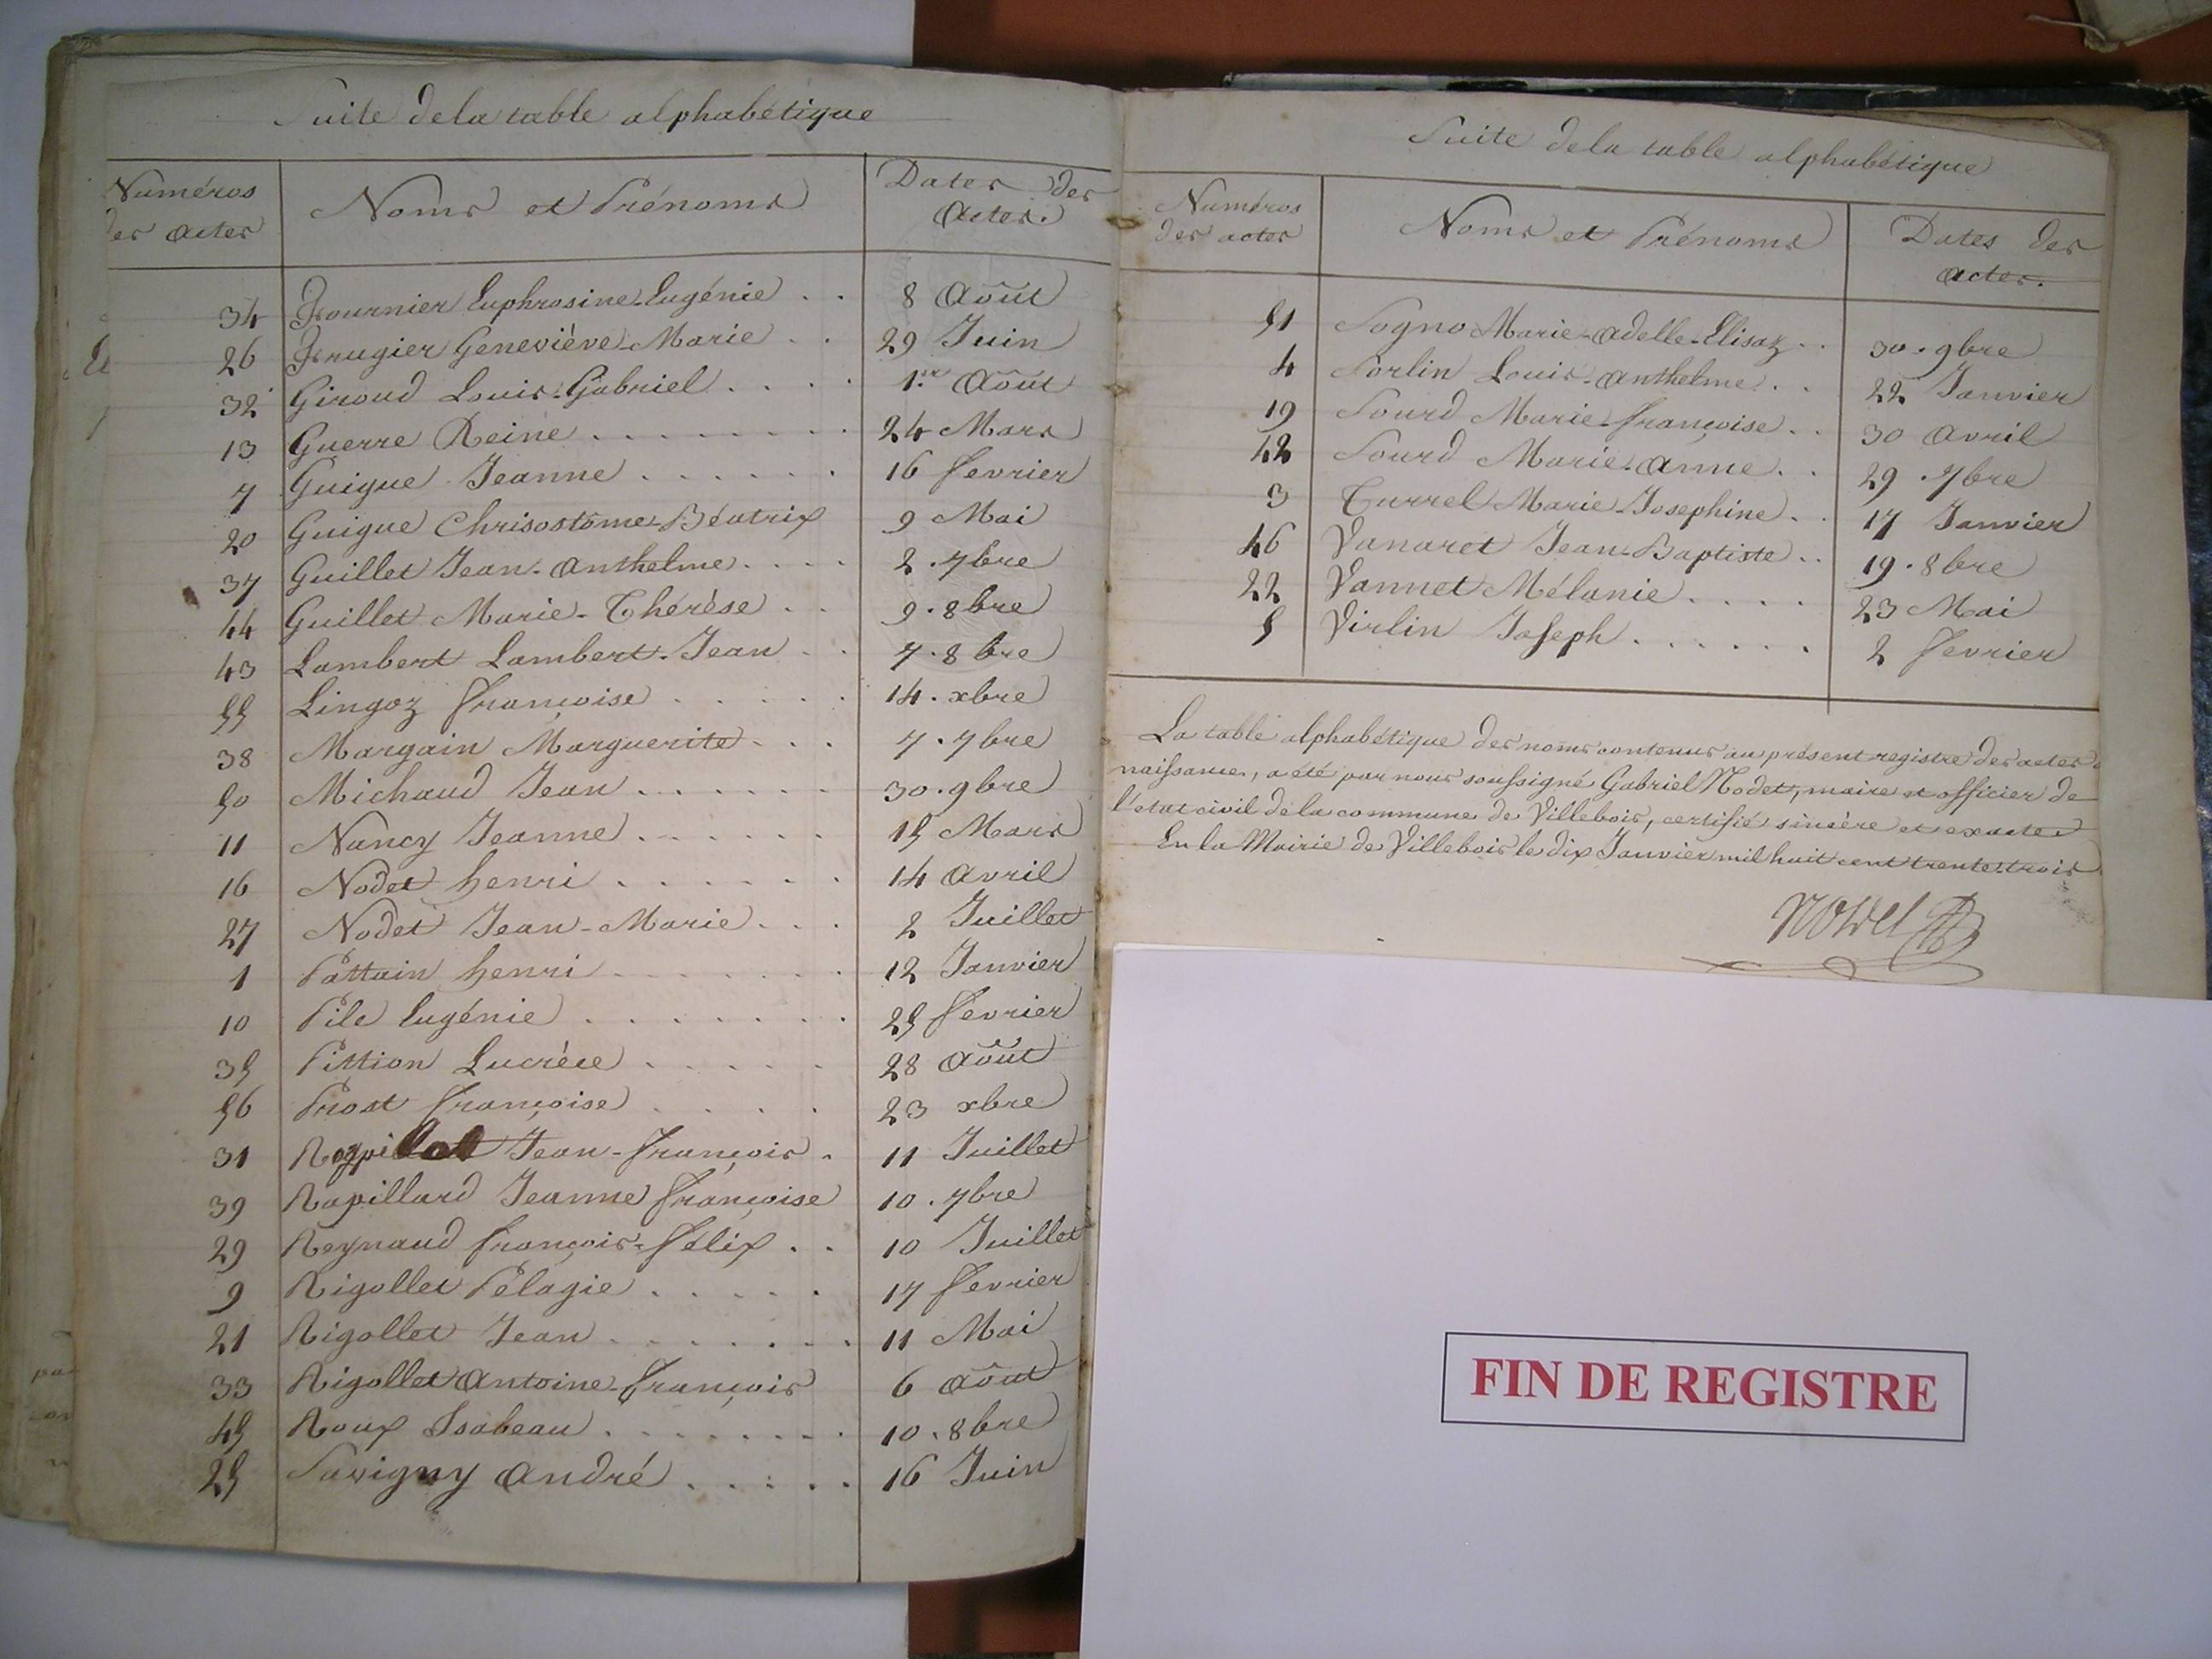 Suite de la table alphabétique
Numéros des actes | Noms et Prénoms | Dates des actes.
34 Fournier Euphrosine-Eugénie . . 8 Août
26 Frugier Geneviève-Marie . . 29 Juin
32 Giroud Louis-Gabriel . . . . 1.er Août
13 Guerre Reine . . . . . . . . 24 Mars
7 Guigue Jeanne . . . . . . 16 fevrier
20 Guigue Chrisostôme-Béatrix 9 Mai
37 Guillet Jean-Anthelme . . . . 2 . 7bre
44 Guillet Marie-Thérèse . . 9 . 8bre
43 Lambert Lambert-Jean . . 7 . 8bre
55 Lingoz françoise . . . . . 14 . xbre
38 Margain Marguerite . . . 7 . 7bre
50 Michaud Jean . . . . . . 30 . 9bre
11 Nancy Jeanne . . . . . . 15 Mars
16 Nodet henri . . . . . . 14 avril
27 Nodet Jean-Marie . . . 2 Juillet
1 Pattain henri . . . . . . . 12 Janvier
10 Pile Eugénie . . . . . . . 25 fevrier
35 Pittion Lucrèce . . . . . 28 Août
56 Prost françoise . . . . 23 xbre
31 Jean-françois . 11 Juillet
39 Rapillard Jeanne françoise 10 . 7bre
29 Reynaud françois-félix . . 10 Juillet
9 Rigollet Pélagie . . . . . 17 fevrier
21 Rigollet Jean . . . . . . . 11 Mai
33 Rigollet Antoine-françois 6 Août
45 Roux Isabeau . . . . . . . . 10 . 8bre
25 Savigny André . . . . . 16 Juin
Suite de la table alphabétique
Numéros des actes | Noms et Prénoms | Dates des actes.
51 Sogno Marie-Adelle-Elisaz . . 30 . 9bre
4 Sorlin Louis-Anthelme . . 22 Janvier
19 Sourd Marie-françoise . . 30 avril
42 Sourd Marie-Anne . . 29 . 7bre
3 Turrel Marie-Josephine . . 17 Janvier
46 Vanaret Jean-Baptiste . . 19 . 8bre
22 Vannet Mélanie . . . . 23 Mai
5 Virlin Joseph . . . . . . 2 fevrier
La table alphabétique des noms contenus au présent registre des actes
naissance, a été par nous soussigné Gabriel Nodet, maire et officier de
l'etat civil de la commune de Villebois, certifié sincère et exacte.
En la Mairie de Villebois le dix Janvier mil huit cent trente-trois
NODET
FIN DE REGISTRE